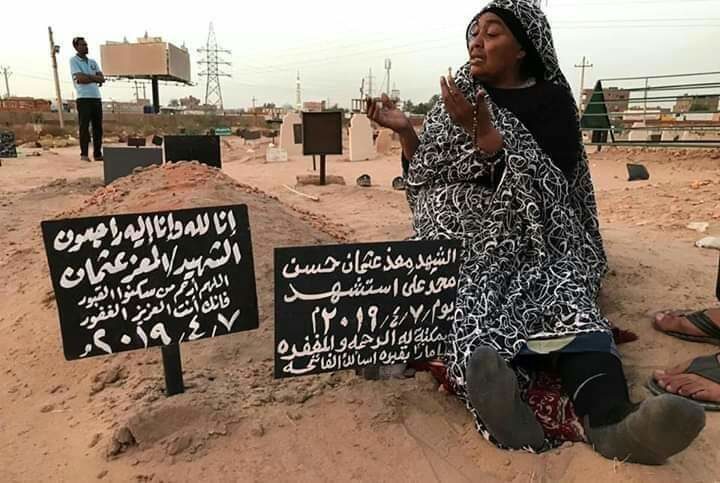 انا لله وانا اليه راجعون
الشهيد/المعز عثمان
اللهم أرحم من سكنوا القبور
فانك أنت العزيز الغفور
٧ ، ٤ ، ٢٠١٩م
الشهيد معذ عثمان حسن
محمد على استشهد
يوم ٧ / ٤ / ٢٠١٩م
له الرحمه والمغفره
يا مارا بقبره اسألك الفاتحه